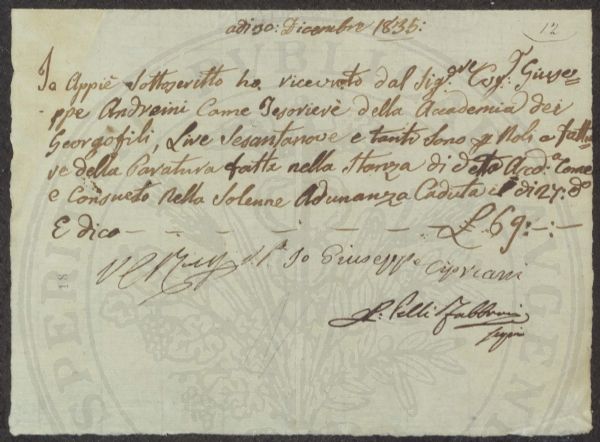 12
adi 30: Dicembre 1835:
Io Appiè Sottoscritto ho ricevuto dal Sig.re Cog.r Giuse=
ppe Andreini Come Tesoriere della Accademia dei
Georgofili, Lire Sesantanove e tanti Sono p Noli e fattu=
re della Paratura fatta nella Stanza di detta Accd.a Come
e Consueto nella Solenne Adunanza Caduta il dì 27: d.o
E dico — — — — — — — £ 69:-:-
Io Giuseppe Cipriani
P: Pelli Fabbroni